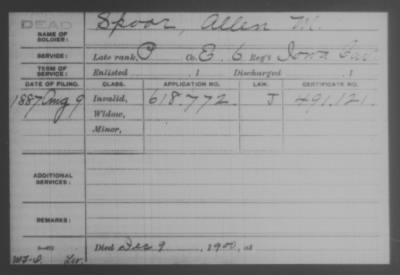 DEAD
NAME OF SOLDIER: Spoor, Allen M.
SERVICE: Late rank, P Co. E, 6 Reg't Iowa Inf
TERM OF SERVICE: Enlisted , 1 Discharged , 1
DATE OF FILING. CLASS. APPLICATION NO. LAW. CERTIFICATE NO.
1887 Aug 9 Invalid, 618.772 J 491.121.
Widow,
Minor,
ADDITIONAL SERVICES:
REMARKS:
Died Dec 9, 1900, at